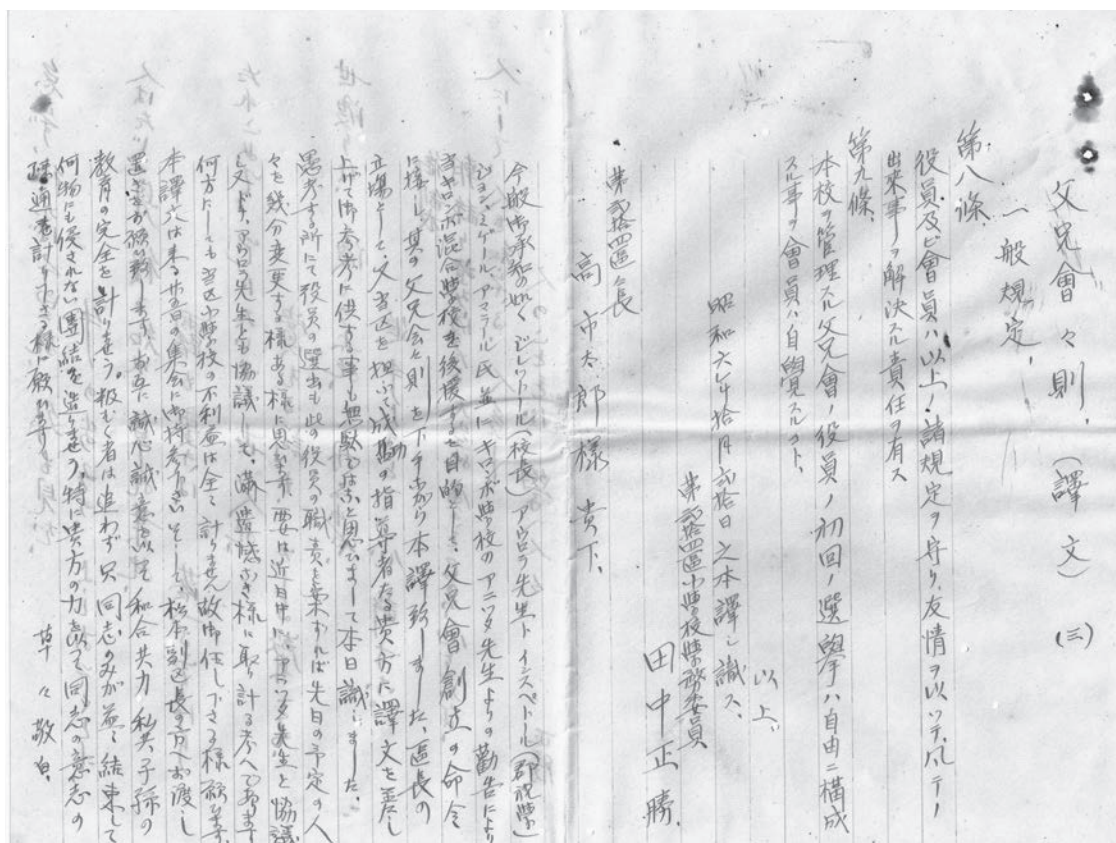 父兄會々則、(譯文)(三)
一般規定、
第八條、
役員及ビ會員ハ以上ノ諸規定ヲ守リ、友情ヲ以ツテ、凡テノ
出来事ヲ解決スル責任ヲ有ス
第九條、
本校ヲ管理スル父兄會ノ役員ノ初回ノ選擧ハ自由ニ構成
スル事ヲ會員ハ自覺スルコト、
以上、
昭和六年拾月貳拾日之本譯シ識ス、
第貳拾四區小學校學務委員
田中正勝
第貳拾四區長
高市太郎様 貴下、
今般御承知の如く ジレクトール(校長)アウロラ先生ト インスペトール(郡視學)
ジョン、ミゲール、アマラール氏並に キロンボ學校のアニツタ先生よりの勸告により
当キロンボ混合學校を後援するを目的とし、父兄會創立の命令
に接し其の父兄会々則を下手ながら本譯致しました、區長の
立場として、又当区を担ふて成功の指導者たる貴方に譯文を差し
上げて御参考に供する事も無駄でないと思ひまして本日識しました、
愚考する所にて役員の選出も此の役員の職責を果すれば先日の予定の人
々を幾分変更する様ある様に思います 要は近日中に、アニツタ先生と協議
し又ドナ、アウロラ先生とも協議して、満遺憾なき様に取り計る考へであります
何方にしても当区小學校の不利益は全く計りません故御任し下さる様願ます、
本譯文は来る廿五日の集会に御持参下さいそして、松本副区長の方へお渡し
置き下さる様願い致します お互に誠心誠意を以て 和合共力 私共、子孫の
教育の完全を計りませう。叛むく者は追わず只同志のみが益々結束して
何物にも侵されない團結を造りませう、特に貴方の力に依って同志の意志の
疎通を計り下さる様に願ひます
草々敬白、